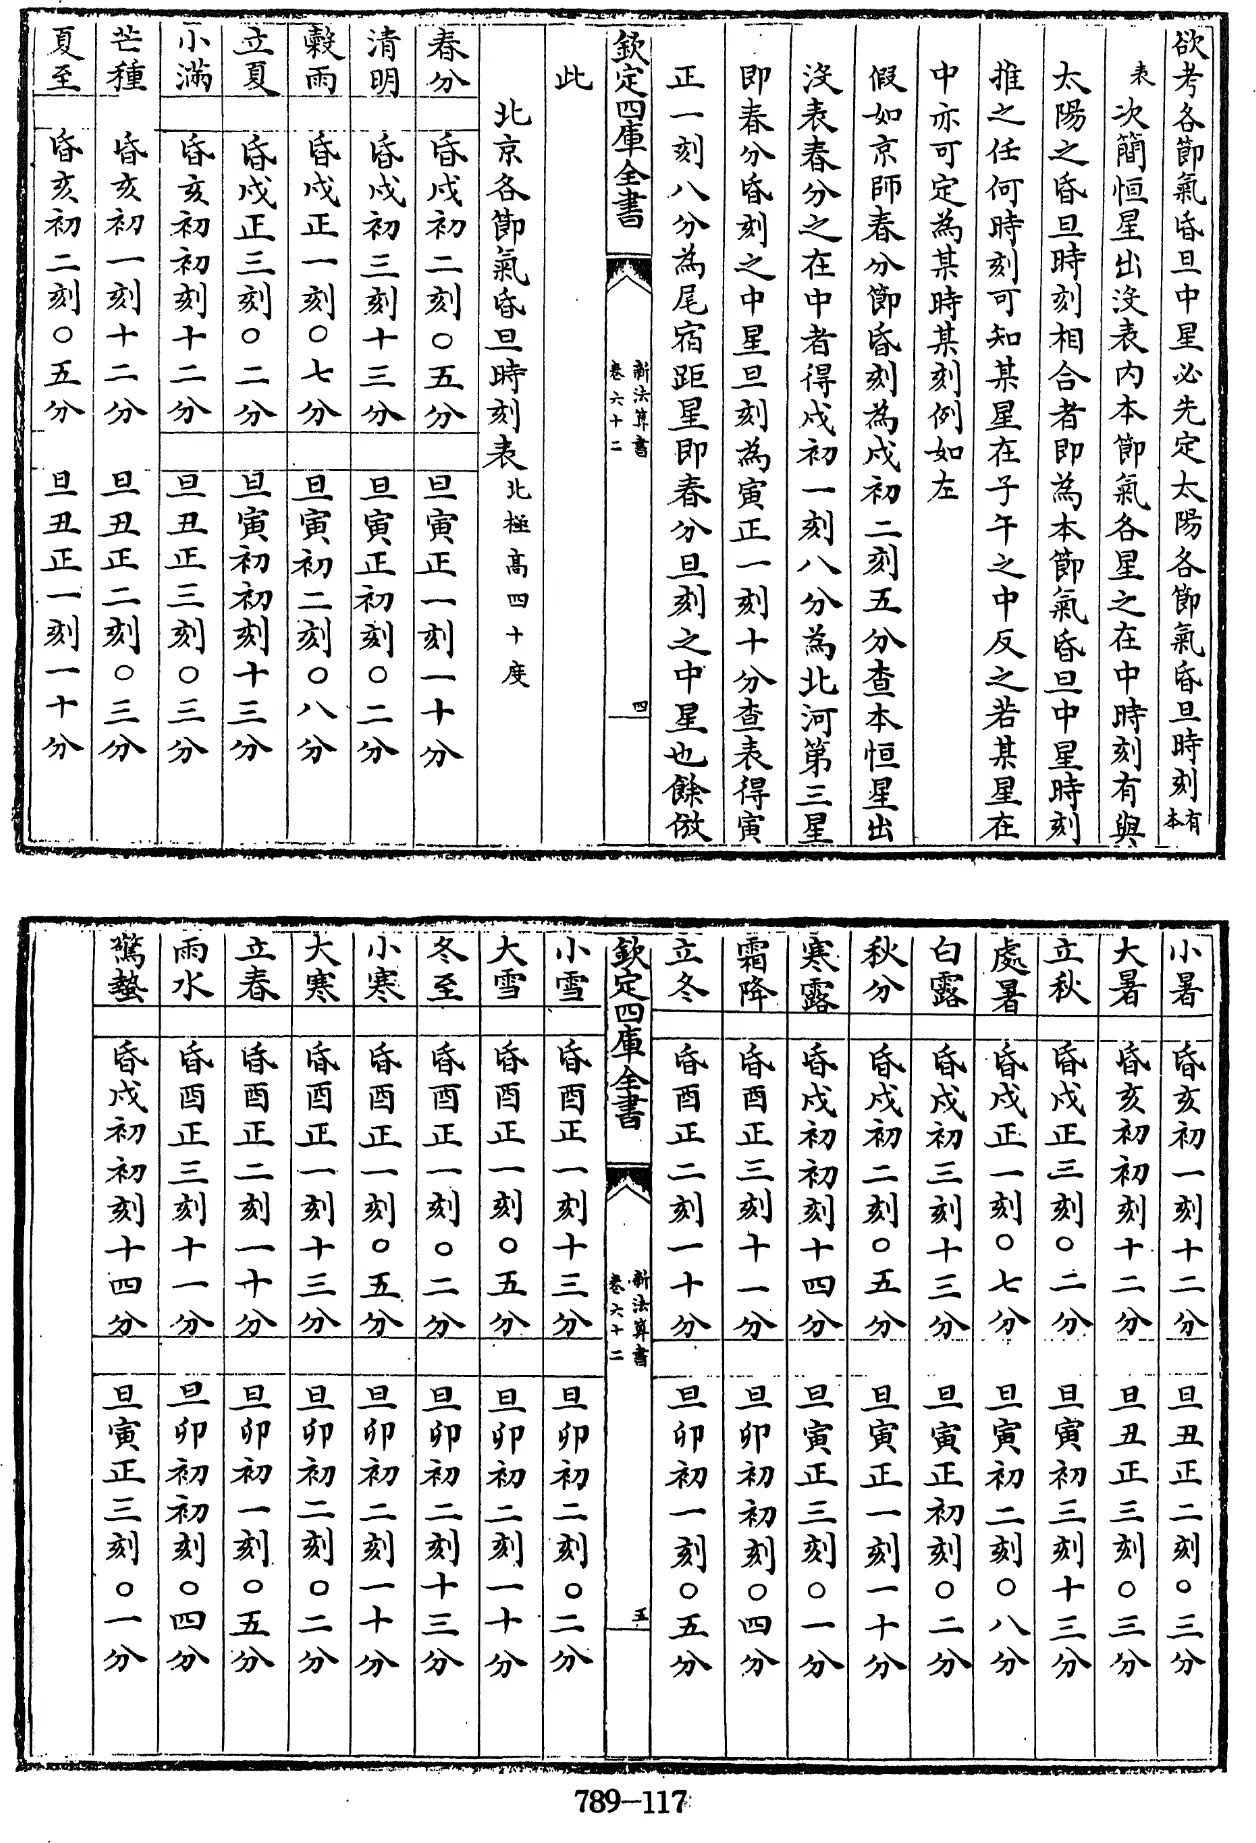 欲考各節氣昏旦中星必先定太陽各節氣昏旦時刻有本
表次簡恒星出沒表内本節氣各星之在中時刻有與
太陽之昏旦時刻相合者即為本節氣昏旦中星時刻
推之任何時刻可知某星在子午之中反之若某星在
中亦可定為某時某刻例如左
假如京師春分節昏刻為戌初二刻五分查本恒星出
沒表春分之在中者得戌初一刻八分為北河第三星
即春分昏刻之中星旦刻為寅正一刻十分查表得寅
正一刻八分為尾宿距星即春分旦刻之中星也餘倣
此
欽定四庫全書
新法算書
卷六十二
四
北京各節氣昏旦時刻表北極高四十度
春分 昏戌初二刻〇五分 旦寅正一刻一十分
清明 昏戌初三刻十三分 旦寅正初刻〇二分
穀雨 昏戌正一刻〇七分 旦寅初二刻〇八分
立夏 昏戌正三刻〇二分 旦寅初初刻十三分
小滿 昏亥初初刻十二分 旦丑正三刻〇三分
芒種 昏亥初一刻十二分 旦丑正二刻〇三分
夏至 昏亥初二刻〇五分 旦丑正一刻一十分
小暑 昏亥初一刻十二分 旦丑正二刻〇三分
大暑 昏亥初初刻十二分 旦丑正三刻〇三分
立秋 昏戌正三刻〇二分 旦寅初三刻十三分
處暑 昏戌正一刻〇七分 旦寅初二刻〇八分
白露 昏戌初三刻十三分 旦寅正初刻〇二分
秋分 昏戌初二刻〇五分 旦寅正一刻一十分
寒露 昏戌初初刻十四分 旦寅正三刻〇一分
霜降 昏酉正三刻十一分 旦卯初初刻〇四分
立冬 昏酉正二刻一十分 旦卯初一刻〇五分
欽定四庫全書
新法算書
卷六十二
五
小雪 昏酉正一刻十三分 旦卯初二刻〇二分
大雪 昏酉正一刻〇五分 旦卯初二刻一十分
冬至 昏酉正一刻〇二分 旦卯初二刻十三分
小寒 昏酉正一刻〇五分 旦卯初二刻一十分
大寒 昏酉正一刻十三分 旦卯初二刻〇二分
立春 昏酉正二刻一十分 旦卯初一刻〇五分
雨水 昏酉正三刻十一分 旦卯初初刻〇四分
驚蟄 昏戌初初刻十四分 旦寅正三刻〇一分
789-117